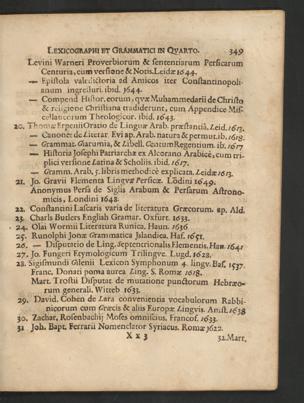 LEXICOGRAPHI ET GRAMMATICI IN QUARTO. 349
Levini Warneri Proverbiorum & sententiarum Persicarum
Centuria, cum versione & Notis. Leidæ 1644.
— Epistola valedictoria ad Amicos iter Constantinopoli-
tanum ingressuri. ibid. 1644.
— Compend Histor. eorum, qvæ Muhammedarii de Christo
& religione Christiana tradiderunt, cum Appendice Mis-
cellaneorum Theologicor. ibid. 1643.
20. Thomæ Erpenii Oratio de Linguæ Arab. præstantiâ, Leid. 1613.
— Canones de Literar. Evi ap. Arab. natura & permut. ib. 1618.
— Grammat. Giarumia, & Libell. Centum Regentium. ib. 1617
— Historia Josephi Patriarchæ ex Alcorano Arabicè, cum tri-
plici versione Latina & Scholiis. ibid. 1617.
— Gramm. Arab, 5. libris methodicè explicata. Leidæ 1613.
21. Jo. Gravii Elementa Lingvæ Persicæ. Lōdini 1649.
Anonymus Persa de Siglis Arabum & Persarum Astrono-
micis, Londini 1648.
22. Constantini Lascaris varia de literatura Græcorum. ap. Ald.
23. Charls Butlers English Gramar. Oxfurt. 1633.
24. Olai Wormii Literatura Runica. Haun. 1636
25. Runolphi Jonæ Grammatica Jslandica. Haf. 1651.
26. — Disputatio de Ling. Septentrionalis Elementis. Haun. 1641
27. Jo. Fungeri Etymologicum Trilingve. Lugd. 1628.
28. Sigismundi Gelenii Lexicon Symphonum 4. lingv. Bas. 1537.
Franc. Donati poma aurea Ling. S. Romæ 1618.
Mart. Trostii Disputat de mutatione punctorum Hebræo-
rum generali. Witteb 1633.
29. David. Cohen de Lara convenientia vocabulorum Rabbi-
nicorum cum Græcis & aliis Europæ Lingvis. Amst. 1638
30. Zachar. Rosenbachij Moses omniscius. Francof. 1633.
31 Joh. Bapt. Ferrarii Nomenclator Syriacus. Romæ 1622.
X x 3
32. Mart.